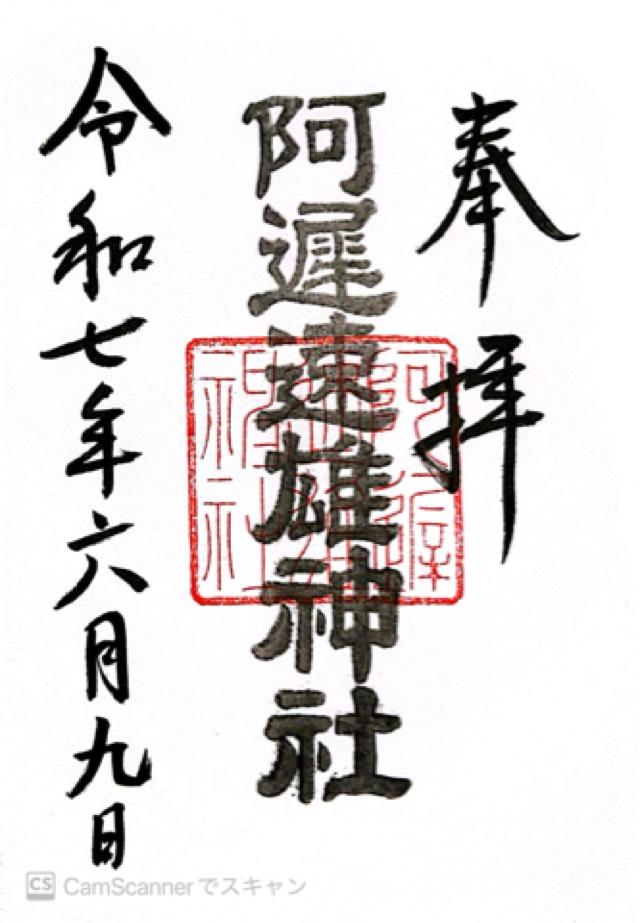 奉拝
阿遲速雄神社
令和七年六月九日
CS CamScannerでスキャン